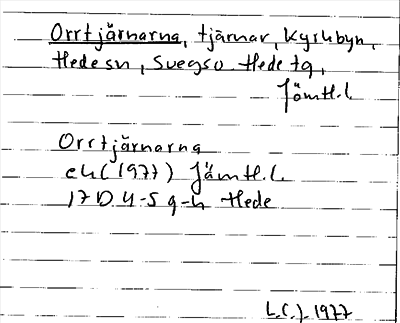 Orrtjärnarna, tjärnar, Kyrkbyn,
Hede sn, Svegs o. Hede tg,
Jämtl. l.
Orrtjärnarna
ek (1977) Jämtl. l.
17 D 4-5 g-h Hede
L.C.J. 1977